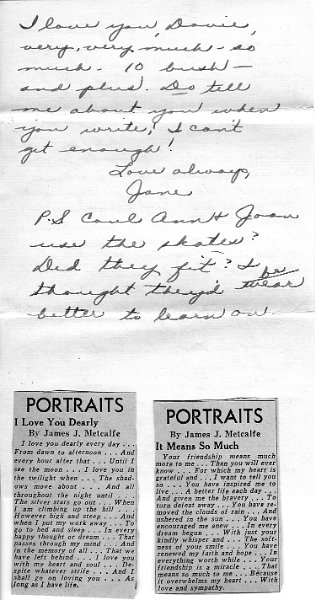 I love you, Davie,
very, very much - so
much. 10 bush -
and plus. Do tell
me about you when
you write, I can't
get enough!
Love always,
Jane
P.S Caul Ann & Joan
use the skates?
Did they fit? I
thought they'd be
better to learn on.
PORTRAITS
I Love You Dearly
By James J. Metcalfe
I love you dearly every day . . .
From dawn to afternoon . . . And
every hour after that . . . Until I
see the moon . . . I love you in
the twilight when . . . The shad-
ows move about . . . And all
throughout the night until . . .
The silver stars go out . . . When I
am climbing up the hill . . .
However high and steep . . . And
when I put my work away . . . To
go to bed and sleep . . . In every
happy thought or dream . . . That
passes through my mind . . . And
in the memory of all . . . That we
have left behind . . . I love you
with my heart and soul . . . De-
spite whatever strife . . . And I
shall go on loving you . . . As
long as I have life.
PORTRAITS
By James J. Metcalfe
It Means So Much
Your friendship means much
more to me . . . Than you will ever
know . . . For which my heart is
grateful and . . . I want to tell you
so . . . You have inspired me to
live . . . A better life each day . . .
And given me the bravery . . . To
turn defeat away . . . You have re-
moved the clouds of rain . . . And
ushered in the sun . . . You have
encouraged me anew . . . In every
dream begun . . . With just your
kindly whisper and . . . The soft-
ness of your smile . . . You have
renewed my faith and hope . . . In
everything worth while . . . Your
friendship is a miracle . . . That
means so much to me . . . Because
it overwhelms my heart . . . With
love and sympathy.